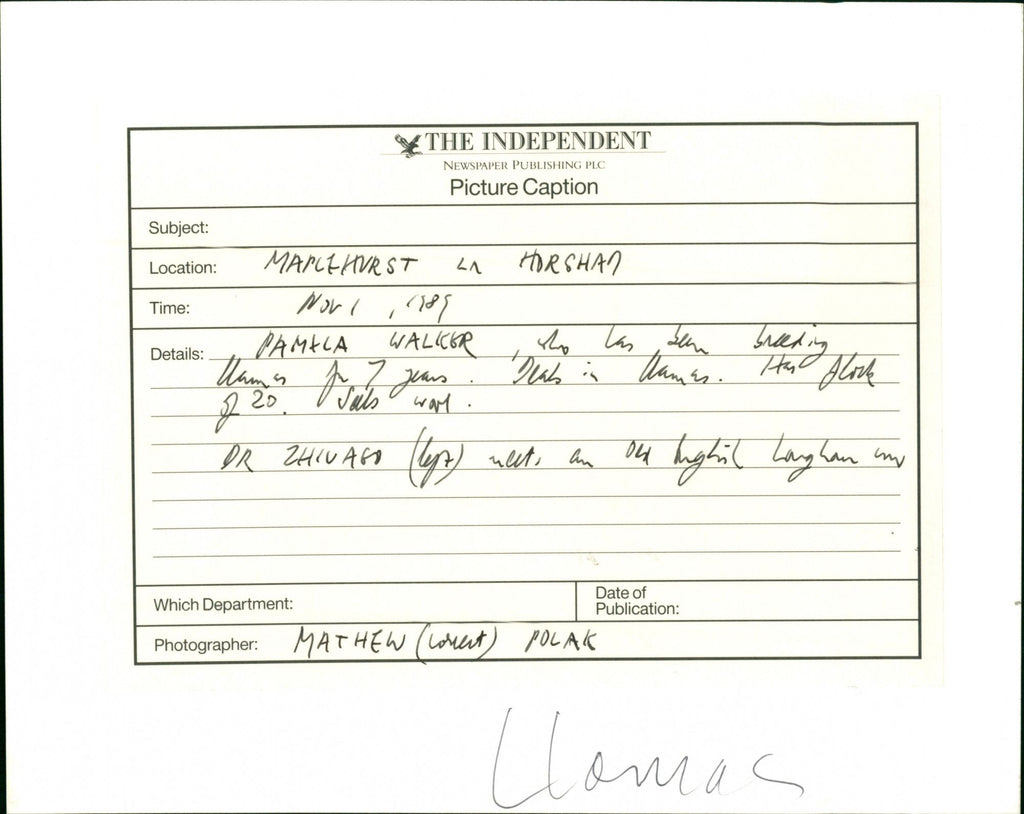 THE INDEPENDENT
NEWSPAPER PUBLISHING PLC
Picture Caption
Subject:
Location: MAPLEHURST nr HORSHAM
Time: Nov 1, 1989
Details: PAMELA WALKER, who has been breeding
llamas for 7 years. Deals in llamas. Has flock
of 20. Sells wool.
DR ZHIVAGO (left) meets an Old English Longhorn cow
Which Department:
Date of
Publication:
Photographer: MATHEW (correct) POLAK
Llamas